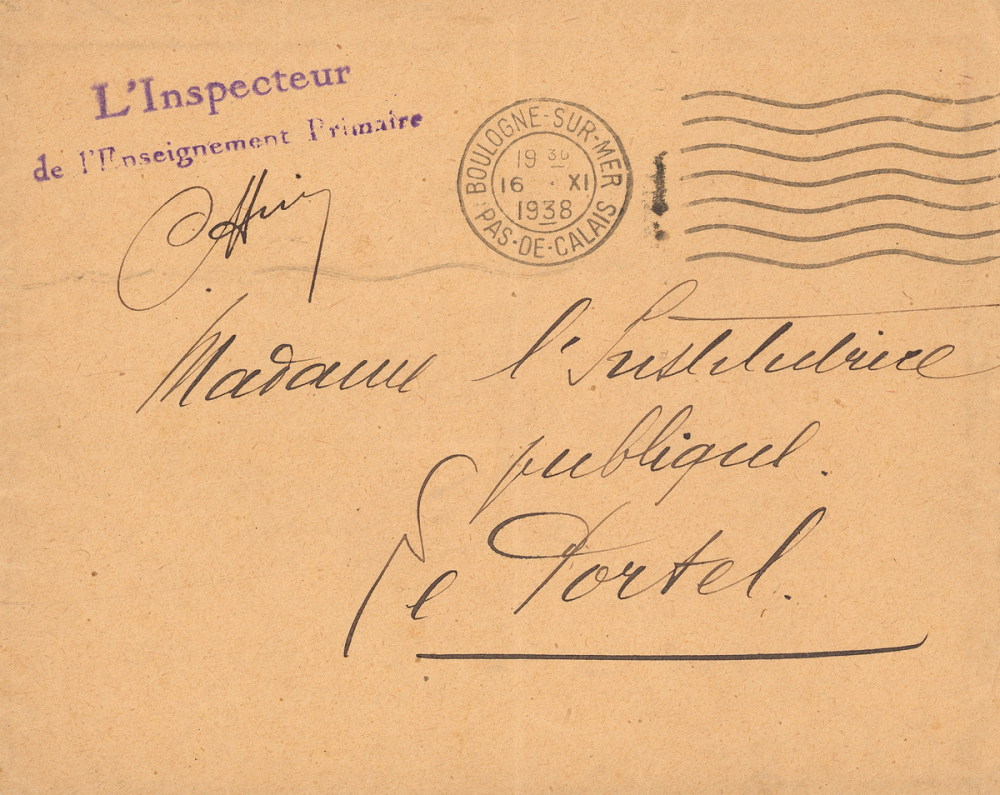 L'Inspecteur
de l'Enseignement Primaire
BOULOGNE-SUR-MER
19 30
16 · XI
1938
PAS-DE-CALAIS
Madame l'Institutrice
publique.
Le Portel.